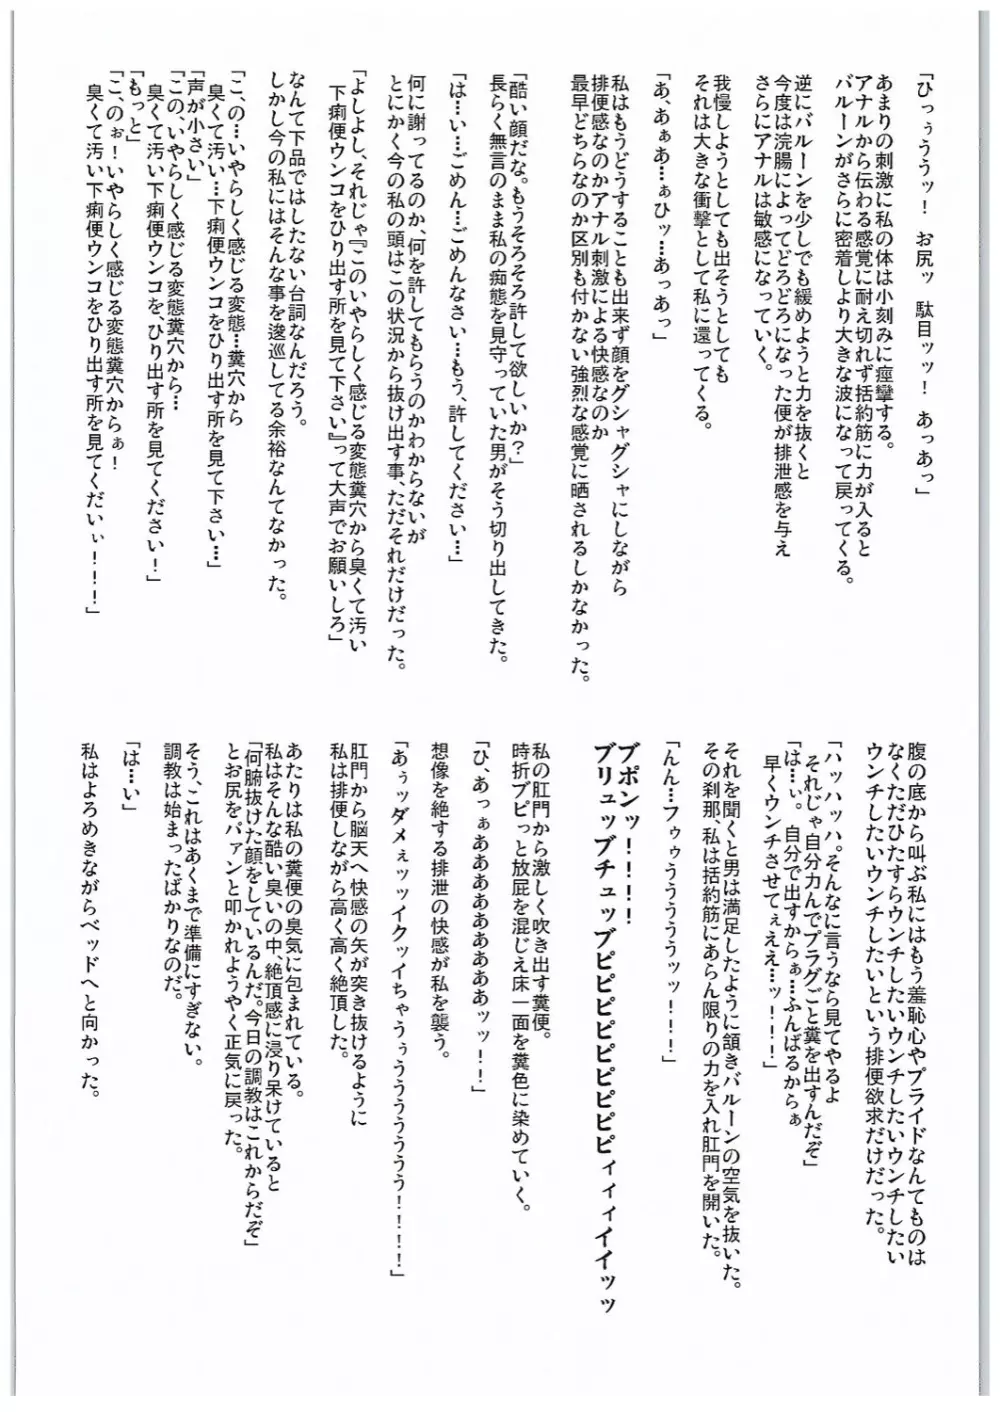 「ひっぅううッ！　お尻ッ　駄目ッッ！　あっあっ」
あまりの刺激に私の体は小刻みに痙攣する。
アナルから伝わる感覚に耐え切れず括約筋に力が入ると
バルーンがさらに密着しより大きな波になって戻ってくる。
逆にバルーンを少しでも緩めようと力を抜くと
今度は浣腸によってどろどろになった便が排泄感を与え
さらにアナルは敏感になっていく。
我慢しようとしても出そうとしても
それは大きな衝撃として私に還ってくる。
「あ、あぁあ…ぁひッ…あっあっ」
私はもうどうすることも出来ず顔をグシャグシャにしながら
排便感なのかアナル刺激による快感なのか
最早どちらなのか区別も付かない強烈な感覚に晒されるしかなかった。
「酷い顔だな。もうそろそろ許して欲しいか？」
長らく無言のまま私の痴態を見守っていた男がそう切り出してきた。
「は…い…ごめん…ごめんなさい…もう、許してください…」
何に謝ってるのか、何を許してもらうのかわからないが
とにかく今の私の頭はこの状況から抜け出す事、ただそれだけだった。
「よしよし、それじゃ『このいやらしく感じる変態糞穴から臭くて汚い
下痢便ウンコをひり出す所を見て下さい』って大声でお願いしろ」
なんて下品ではしたない台詞なんだろう。
しかし今の私にはそんな事を逡巡してる余裕なんてなかった。
「こ、の…いやらしく感じる変態…糞穴から
臭くて汚い…下痢便ウンコをひり出す所を見て下さい…」
「声が小さい」
「この、いやらしく感じる変態糞穴から…
臭くて汚い下痢便ウンコを、ひり出す所を見てください！」
「もっと」
「こ、のぉ！いやらしく感じる変態糞穴からぁ！
臭くて汚い下痢便ウンコをひり出す所を見てくだいぃ！！！」
腹の底から叫ぶ私にはもう羞恥心やプライドなんてものは
なくただひたすらウンチしたいウンチしたいウンチしたい
ウンチしたいウンチしたいという排便欲求だけだった。
「ハッハッハ。そんなに言うなら見てやるよ
それじゃ自分力んでプラグごと糞を出すんだぞ」
「は…ぃ。自分で出すからぁ…ふんばるからぁ
早くウンチさせてぇええ…ッ！！！」
それを聞くと男は満足したように頷きバルーンの空気を抜いた。
その刹那、私は括約筋にあらん限りの力を入れ肛門を開いた。
「んん…フゥゥううううッッ！！！」
ブポンッ！！！！
ブリュッッブチュッッブピピピピピピピピィィィイイッッ
私の肛門から激しく吹き出す糞便。
時折ブピっと放屁を混じえ床一面を糞色に染めていく。
「ひ、あっぁああああああああッッ！！」
想像を絶する排泄の快感が私を襲う。
「あぅッダメぇッッイクッイちゃうぅぅうううううう！！！！」
肛門から脳天へ快感の矢が突き抜けるように
私は排便しながら高く高く絶頂した。
あたりは私の糞便の臭気に包まれている。
私はそんな酷い臭いの中、絶頂感に浸り呆けていると
「何腑抜けた顔をしているんだ。今日の調教はこれからだぞ」
とお尻をパァンと叩かれようやく正気に戻った。
そう、これはあくまで準備にすぎない。
調教は始まったばかりなのだ。
「は…い」
私はよろめきながらベッドへと向かった。